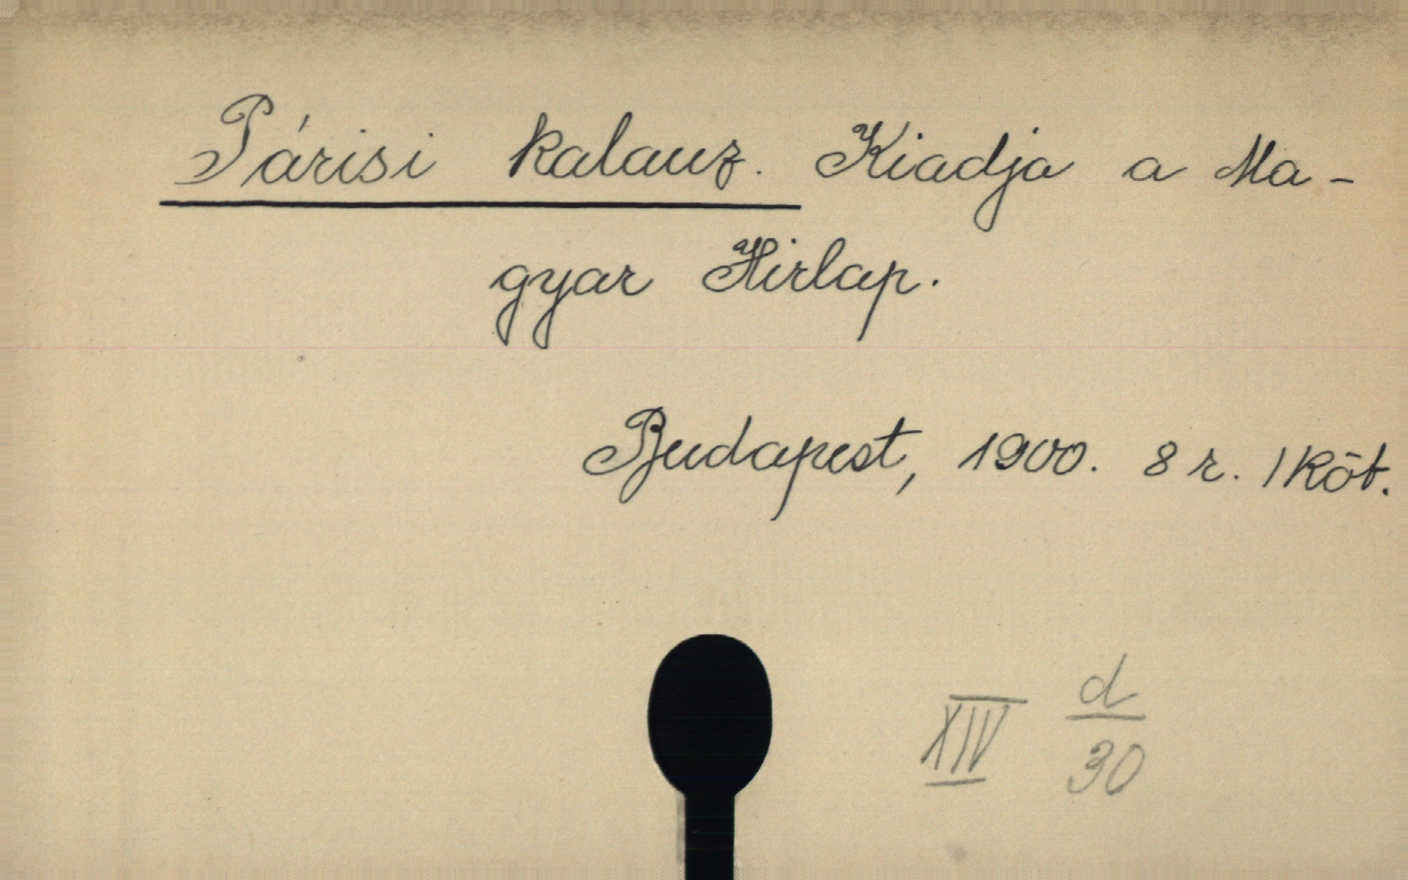 Párisi kalauz. Kiadja a Ma-
gyar Hirlap.
Budapest, 1900. 8 r. 1 Köt.
XIV d/30